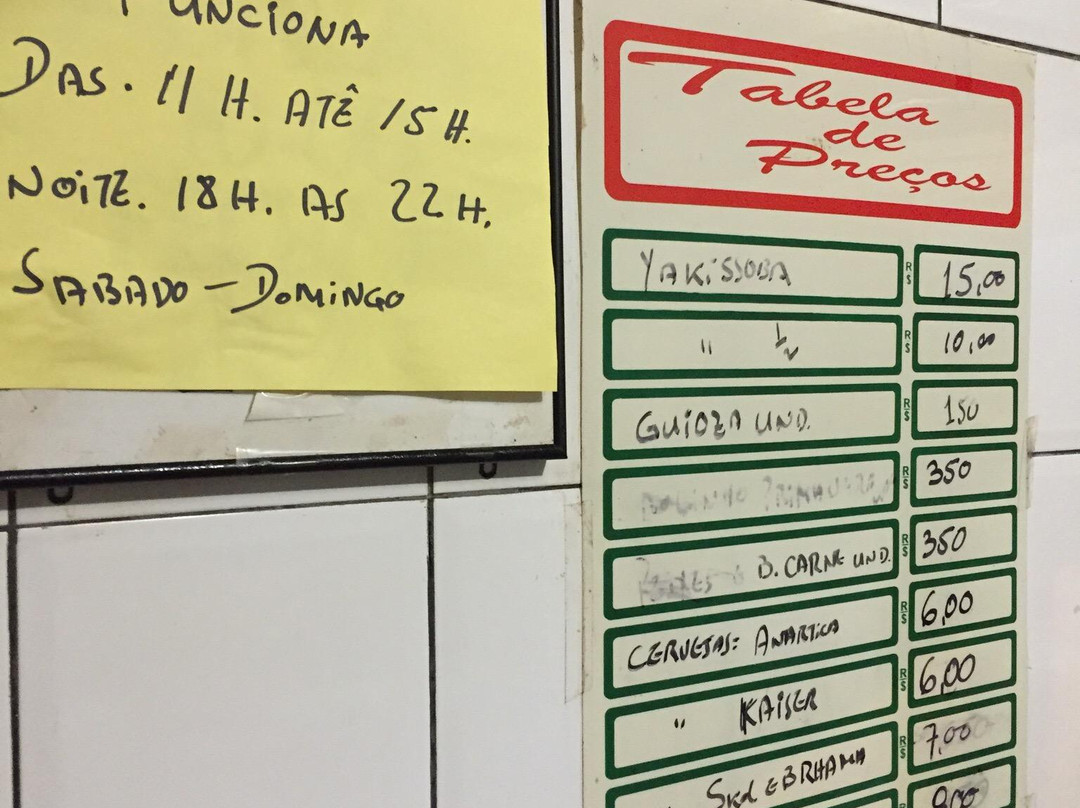 FUNCIONA
DAS. 11 H. ATÊ 15 H.
NOITE. 18 H. AS 22 H.
SABADO - DOMINGO
Tabela
de
Preços
YAKISSOBA R$ 15,00
" 1/2 R$ 10,00
GUIOZA UND. R$ 150
ROLINHO PRIMAVERA R$ 350
B. CARNE UND. R$ 350
CERVEJAS: ANARTICA R$ 6,00
" KAISER R$ 6,00
SKOL E BRHAMA R$ 7,00